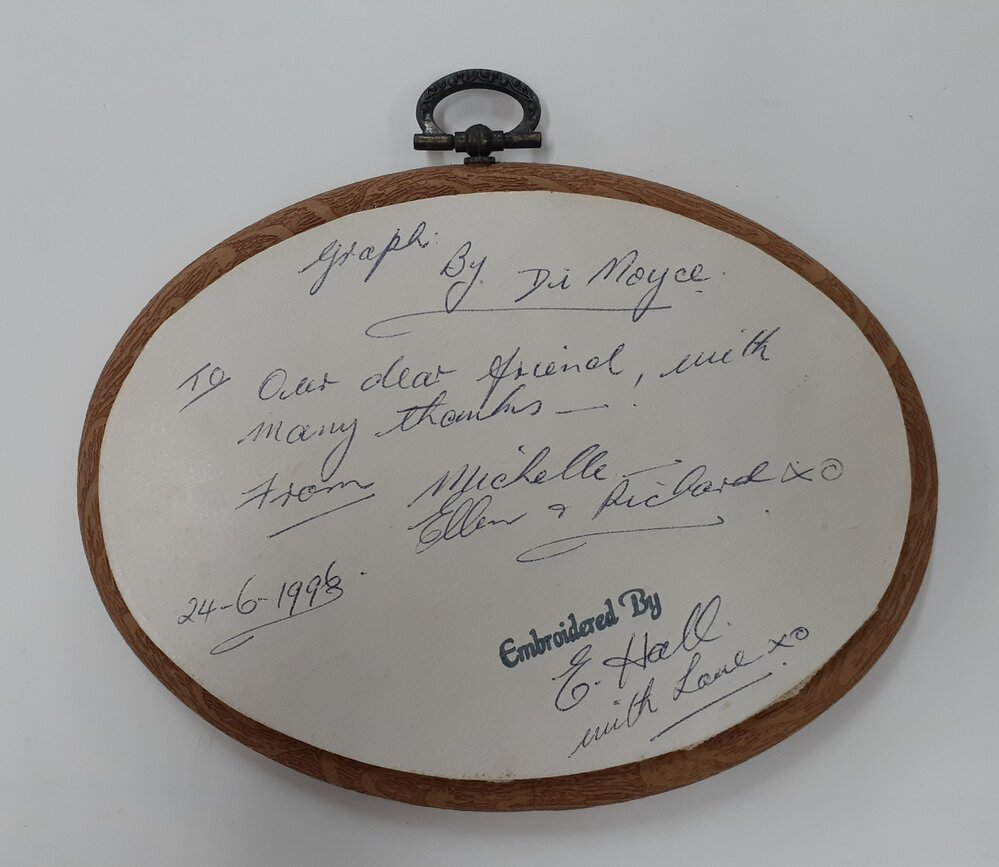 Graph.
By Di Moyce.
To Our dear friend, with
many thanks —.
From Michelle
Ellen & Richard xo
24-6-1996.
Embroidered By
E. Hall.
with Love xo